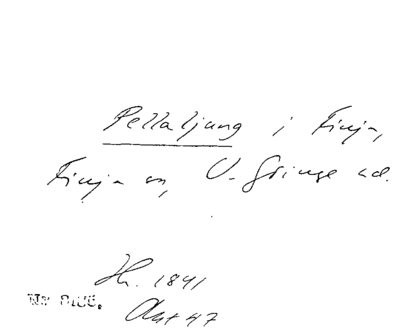 Pellaljung i Finja,
Finja sn, V. Göinge hd.
Hr. 1841
Akt 47